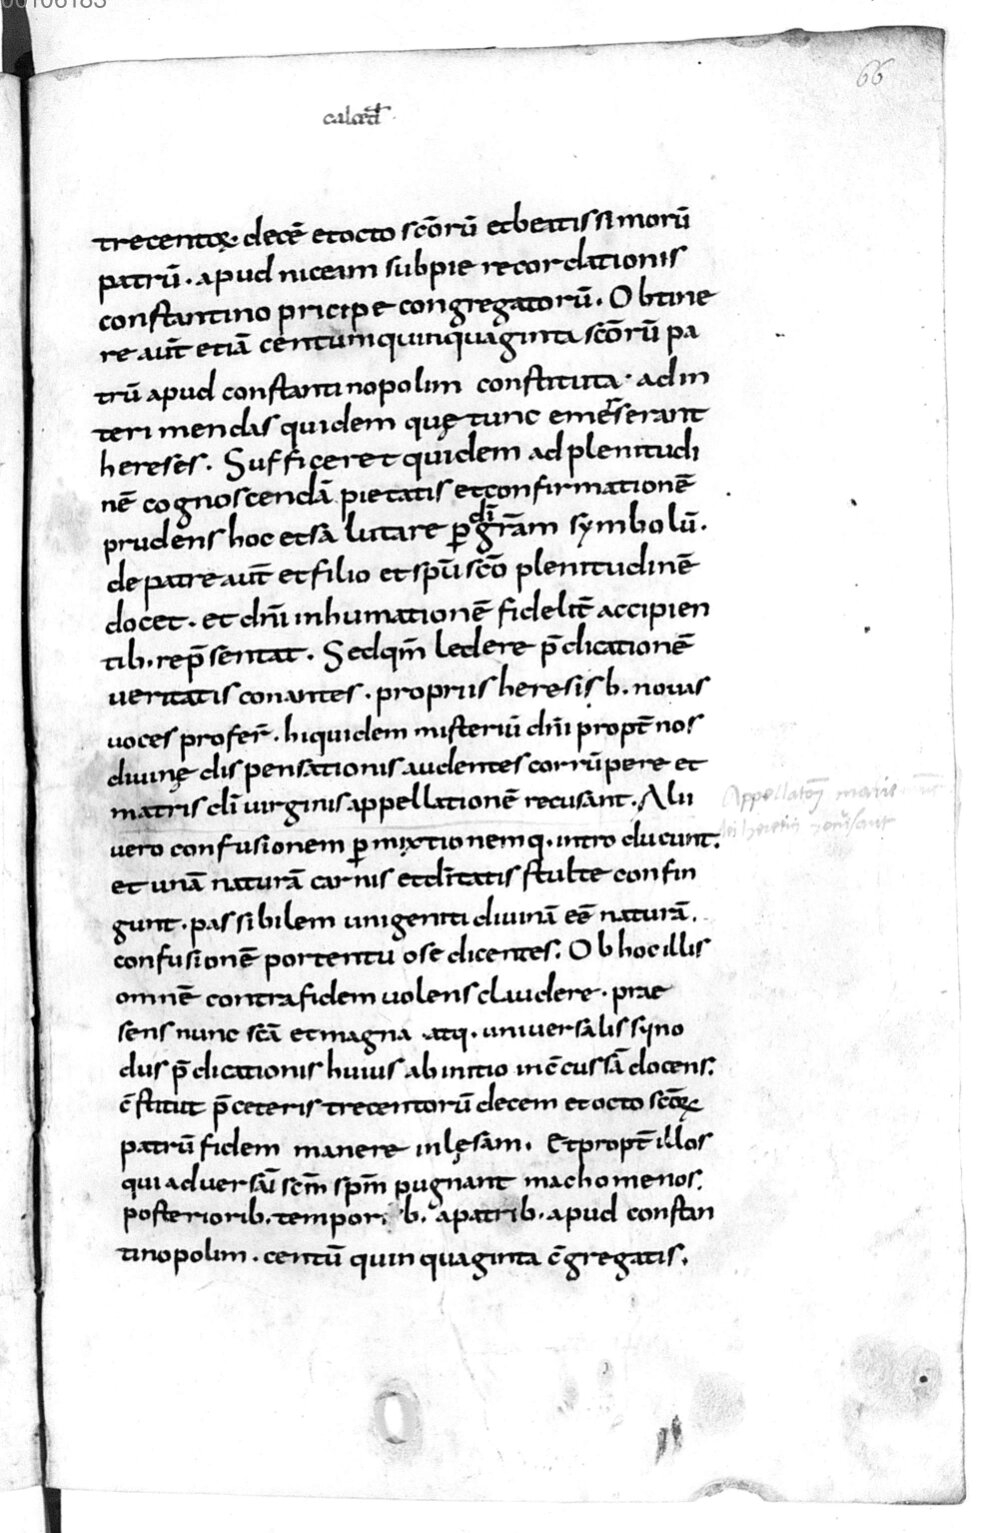 00106183
66
calcēđ
trecentoꝝ decē et octo scōrū et beatissimorū
patrū. apud niceam sub pie recordationis
constantino pricipe congregatorū. Obtine
re aut̄ etiā centum quinquaginta scōrū pa
trū apud constantinopolim constituta. ad in
teri mendas quidem quę tunc emerserant
hereses. Sufficeret quidem ad plenitudi
nē cognoscendā pietatis et confirmationē
prudens hoc et salutare ꝑ dī gr̄am symbolū.
de patre aut̄ et filio et spū scō plenitudinē
docet. et dn̄i inhumationē fidelit̄ accipien
tib. rep̄sentat. Sed qm̄ ledere p̄dicationē
ueritatis conantes. propriis heresisb. nouas
uoces profer̄. hi quidem misteriū dn̄i propt̄ nos
diuinę dispensationis audentes corrūpere et
matris dī uirginis appellationē recusant. Alii
uero confusionem ꝑmixtionemq. introducunt.
et unā naturā carnis et dītatis stulte confin
gunt. passibilem unigeniti diuinā eē naturā.
confusionē portentuose dicentes. Ob hoc illis
omnē contra fidem uolens claudere. prae
sens nunc scā et magna atq. uniuersalis syno
dus p̄dicationis huius ab initio inc̄cussā docens.
c̄stituit p̄ ceteris trecentorū decem et octo scōꝝ
patrū fidem manere inlęsam. Et propt̄ illos
qui aduersū scm̄ spm̄ pugnant machomenos.
posteriorib. temporib. a patrib. apud constan
tinopolim. centū quinquaginta c̄gregatis.
Appellatōꝫ marie